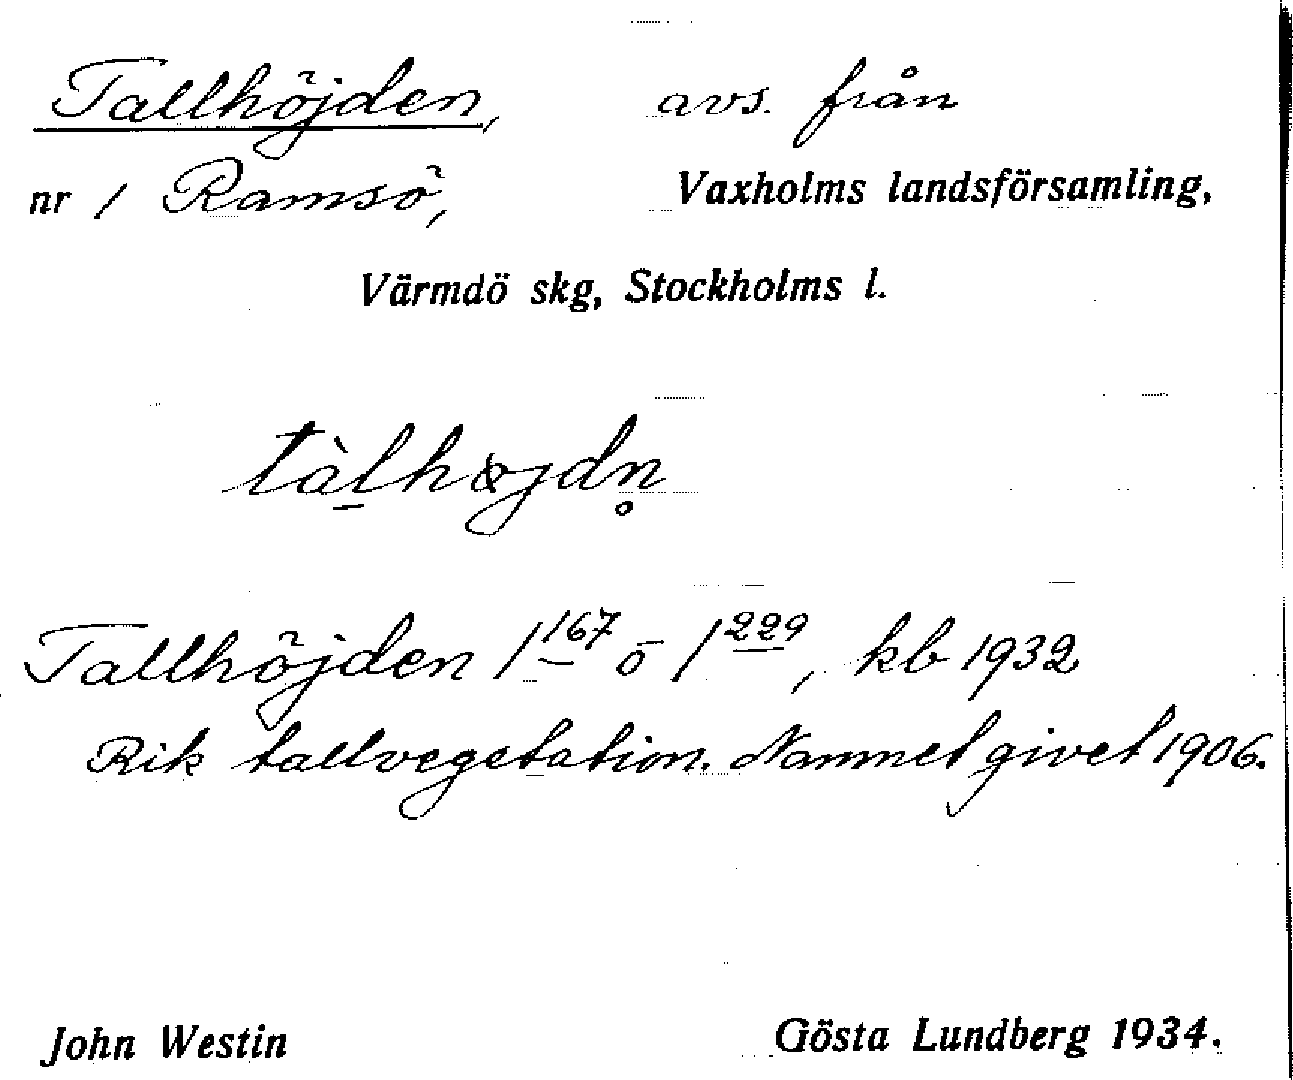 Tallhöjden, avs. från
nr 1 Ramsö, Vaxholms landsförsamling,
Värmdö skg, Stockholms l.
tàlhøjdn̥
Tallhöjden 1¹⁶⁷ o 1²²⁹, kb 1932
Rik tallvegetation. Namnet givet 1906.
John Westin Gösta Lundberg 1934.